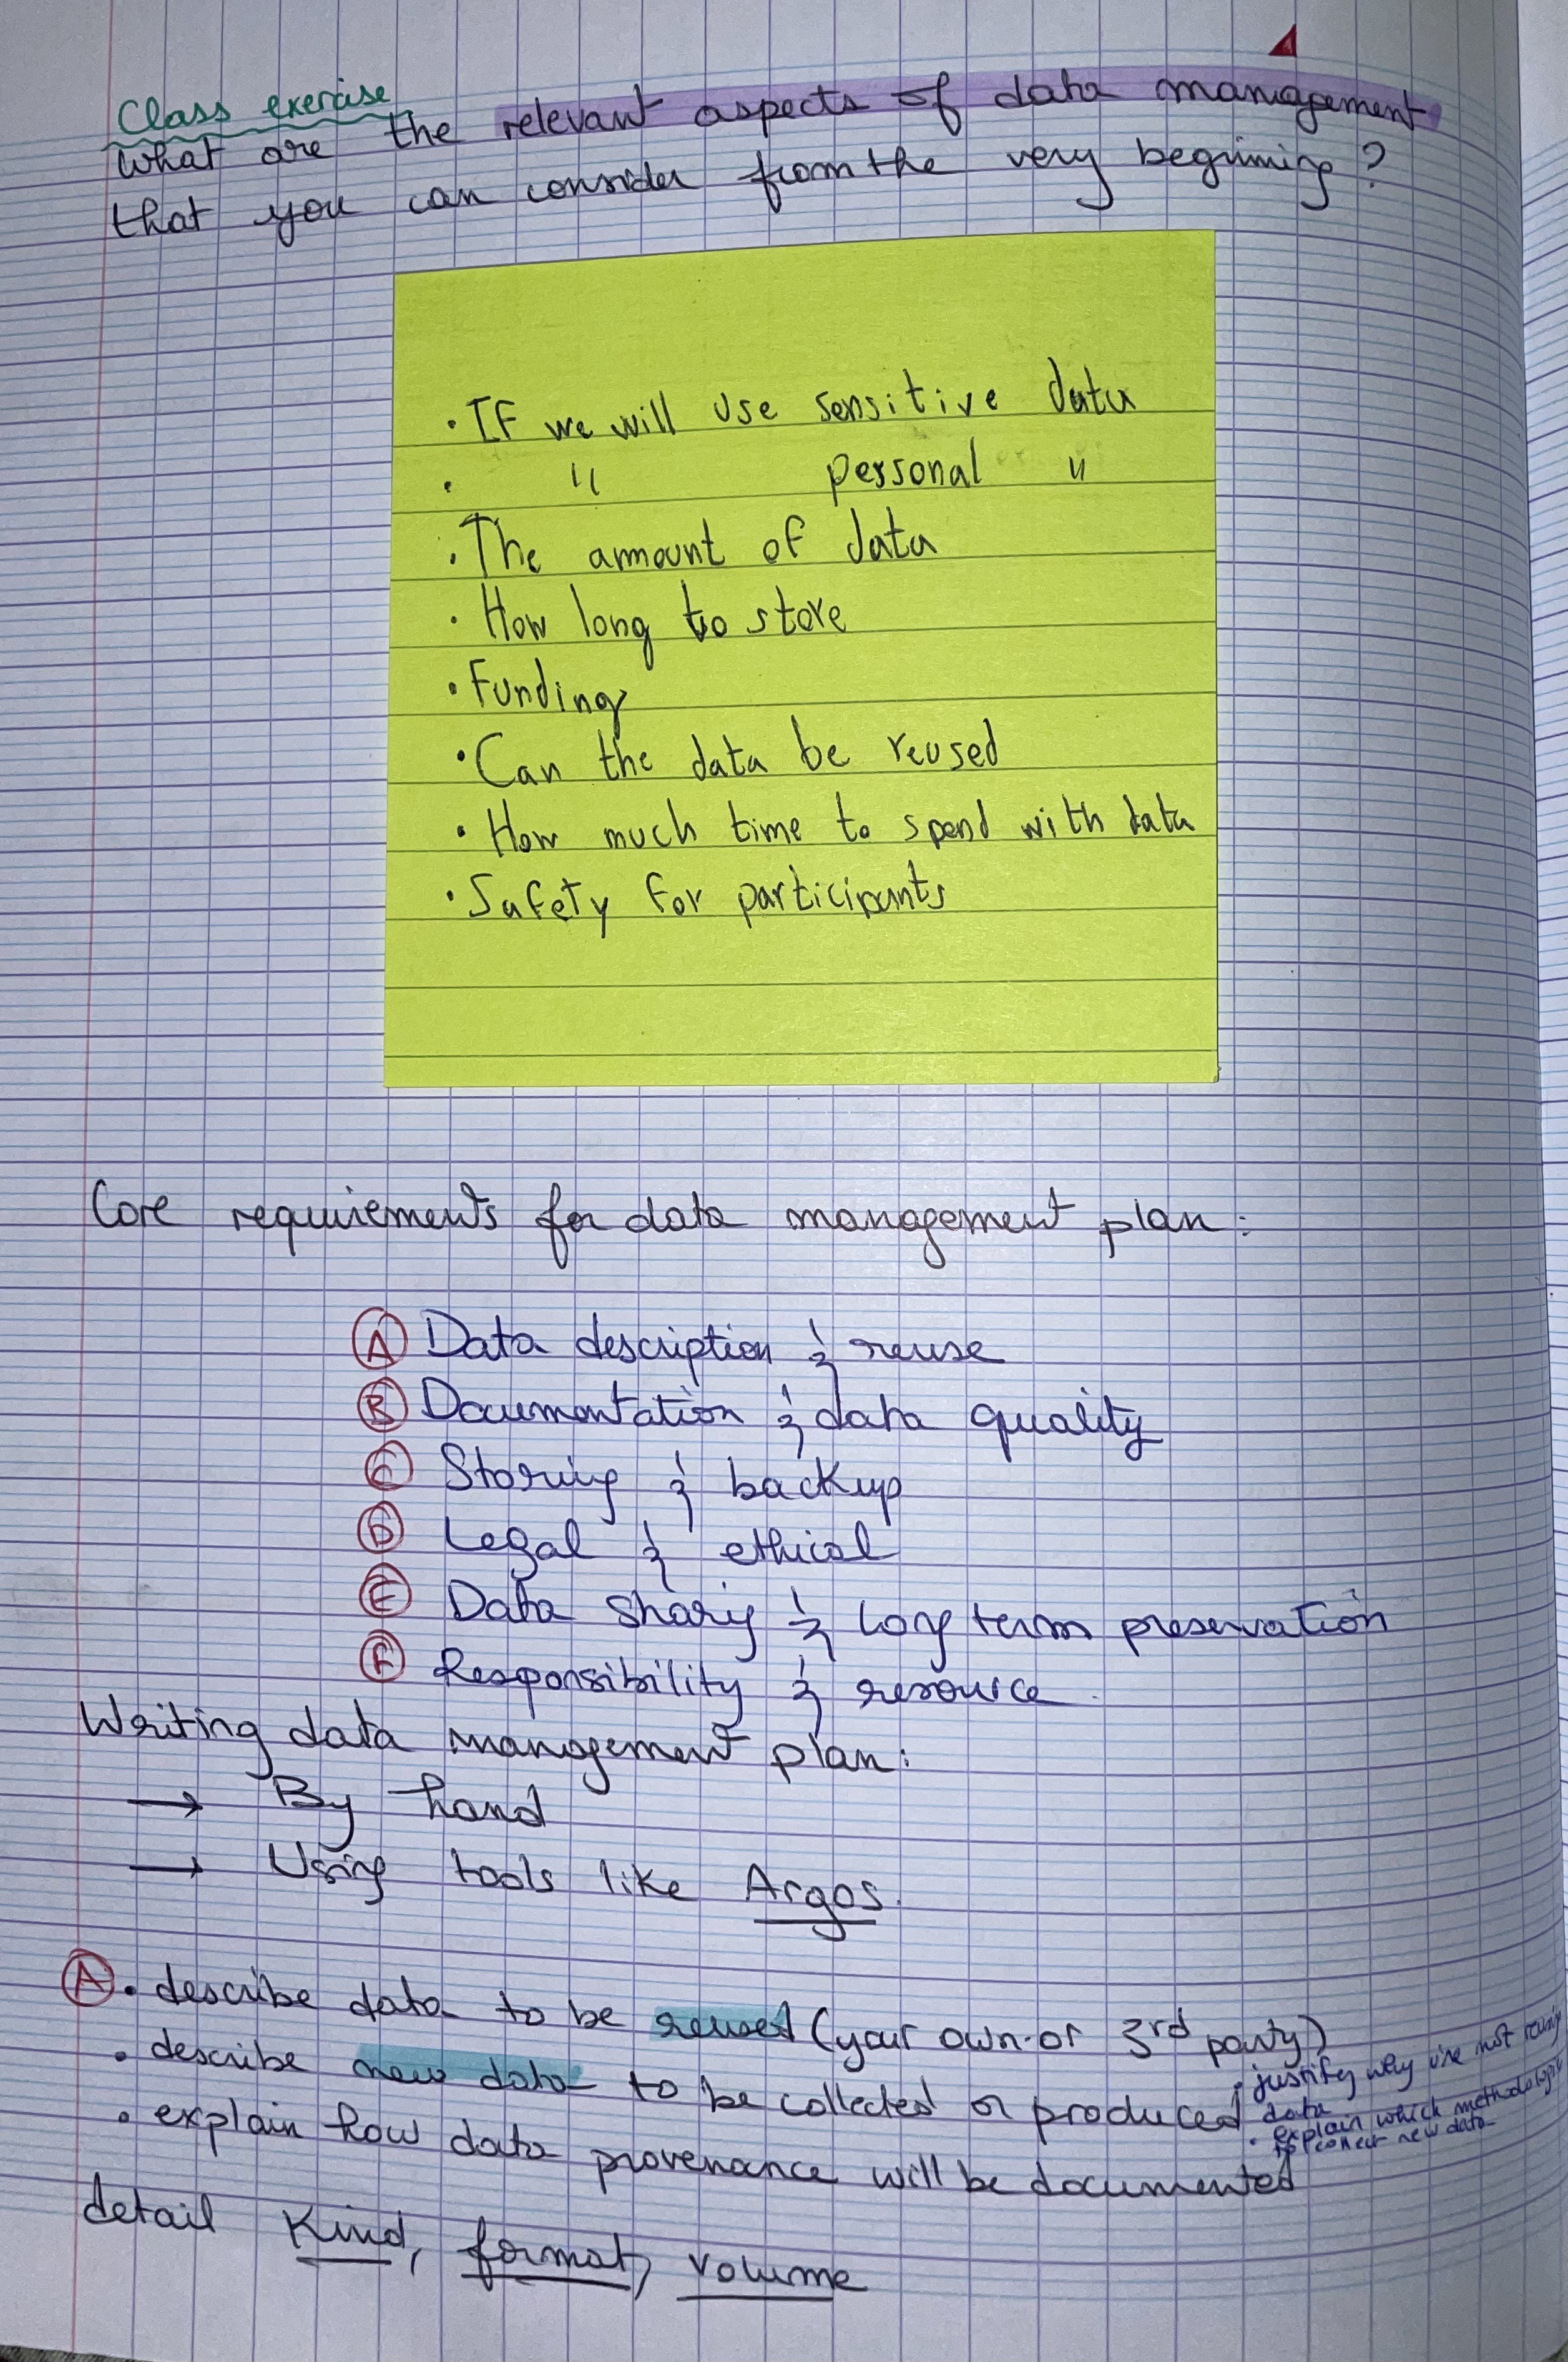 Class exercise
What are the relevant aspects of data management
that you can consider from the very beginning?
• IF we will use sensitive data
• " personal "
• The amount of data
• How long to store
• Funding
• Can the data be reused
• How much time to spend with data
• Safety for participants
Core requirements for data management plan:
Ⓐ Data description & reuse
Ⓑ Documentation & data quality
Ⓒ Storing & backup
Ⓓ Legal & ethical
Ⓔ Data sharing & long term preservation
Ⓕ Responsibility & resource
Writing data management plan:
→ By hand
→ Using tools like Argos.
Ⓐ • describe data to be reused (your own or 3rd party)
• describe new data to be collected or produced
• justify why we not reusing
data
• explain which methodologie
to collect new data
• explain how data provenance will be documented
detail Kind, format, volume